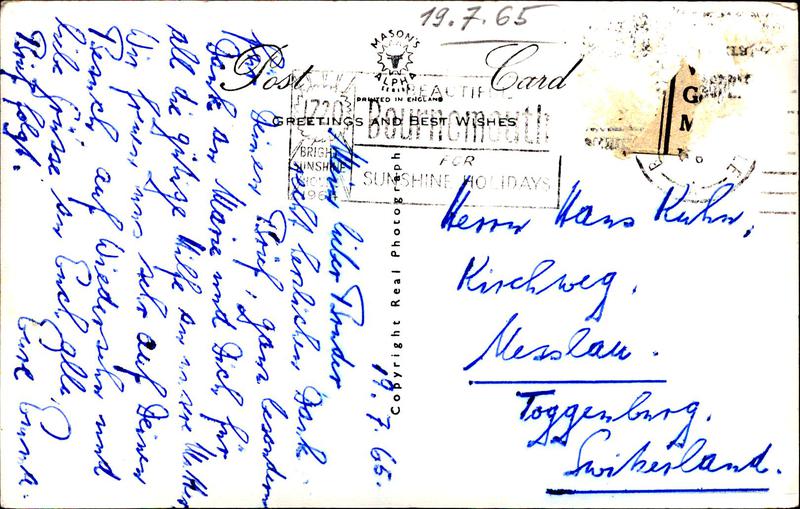 19.7.65
Post Card
MASON'S
ALPHA
SERIES
PRINTED IN ENGLAND
GREETINGS AND BEST WISHES
BEAUTIFUL
Bournemouth
FOR
SUNSHINE HOLIDAYS
1730
BRIGHT
SUNSHINE
HOURS
Copyright Real Photograph
19.7.65.
Mein lieber Bruder
recht herzlichen Dank
für Deinen Brief, ganz besonderen
Dank an Marie und Dich für
all die gütige Hilfe an unsere Mutter
Wir freuen uns sehr auf Deinen
Besuch auf Wiedersehn und
liebe Grüsse an Euch alle
Brief folgt. Eure
Herrn Hans Kuhn,
Kirchweg.
Nesslau.
Toggenburg.
Switzerland.